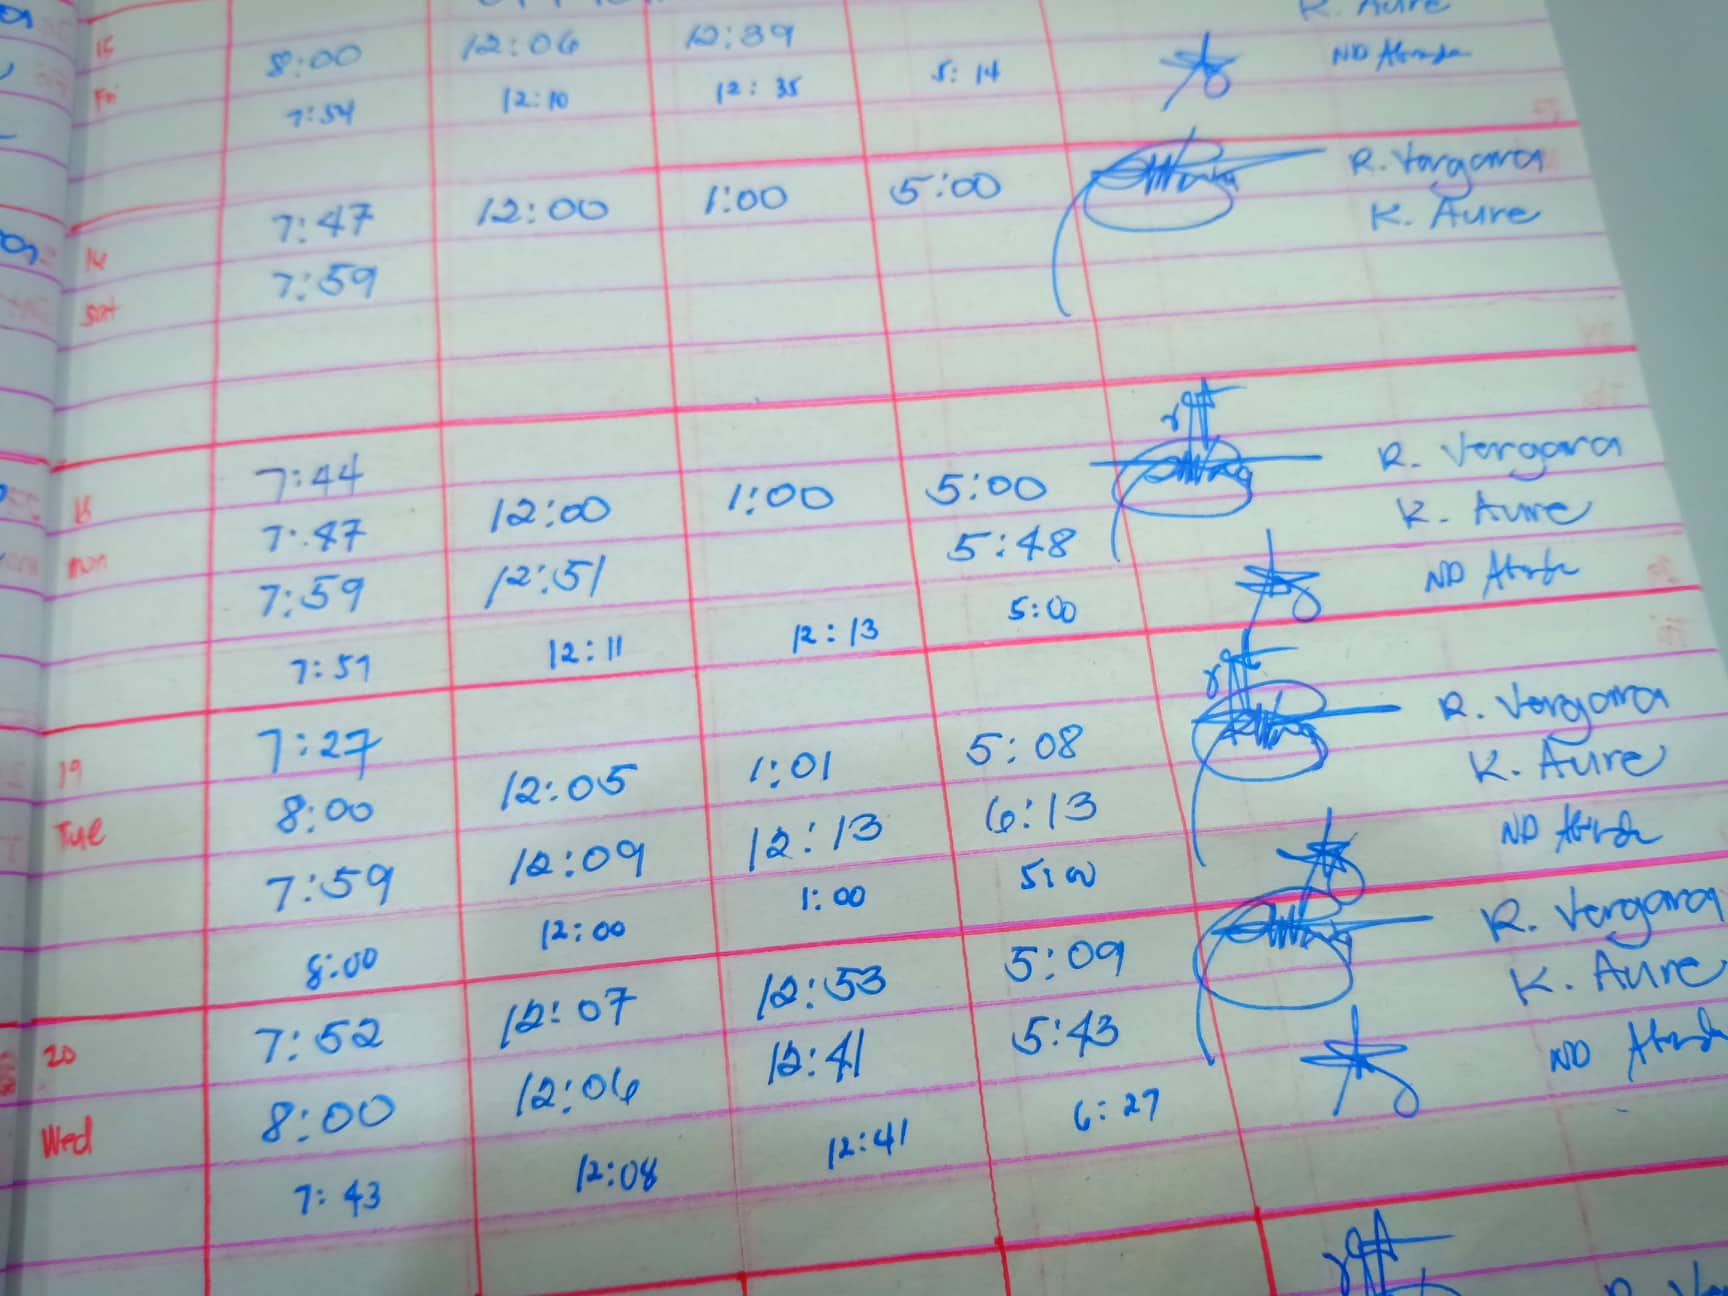 8:00 12:06 12:39 K. Aure
Fri 7:54 12:10 12:35 5:14
7:47 12:00 1:00 5:00 R. Vergara
Sat 7:59 K. Aure
7:44
7:47 12:00 1:00 5:00 R. Vergara
mon 7:59 12:51 5:48 K. Aure
7:51 12:11 12:13 5:00 ND
19 7:27
8:00 12:05 1:01 5:08 R. Vergara
Tue 7:59 12:09 12:13 6:13 K. Aure
8:00 12:00 1:00 5:00 ND
20 7:52 12:07 12:53 5:09 R. Vergara
8:00 12:06 12:41 5:43 K. Aure
Wed 7:43 12:08 12:41 6:27 ND